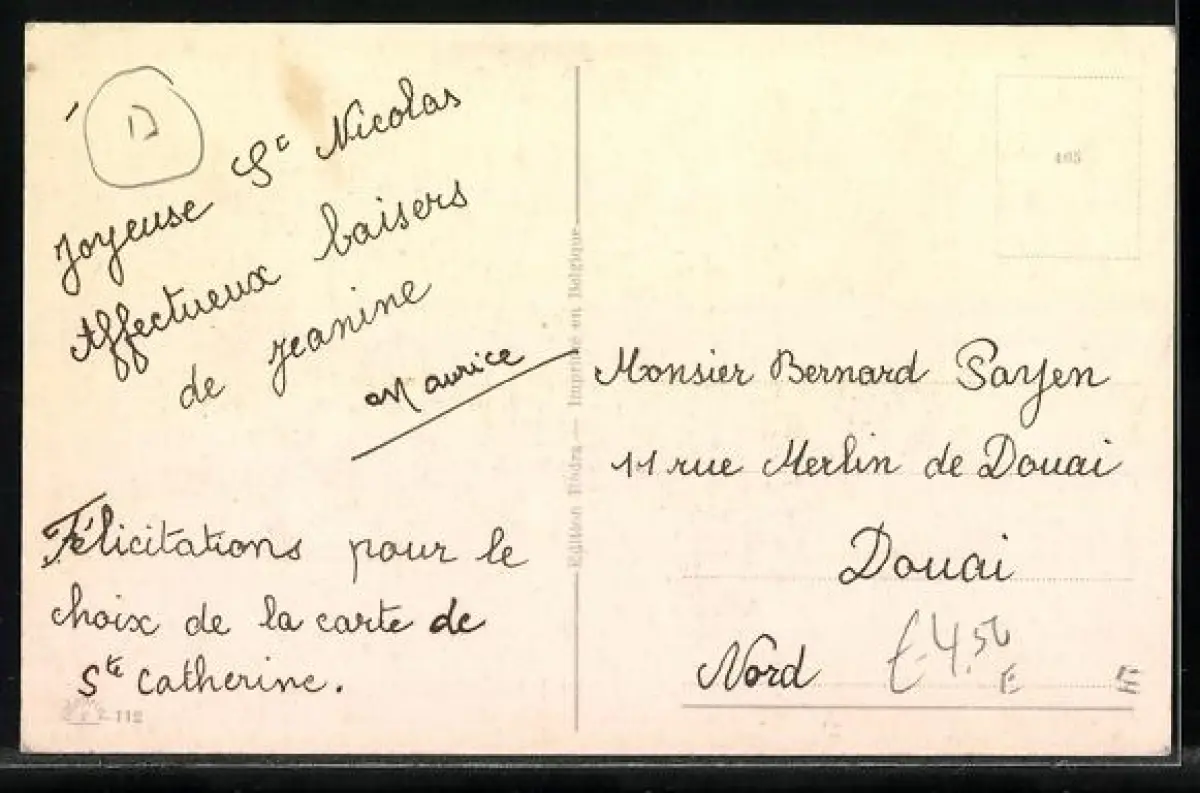 D
Joyeuse St Nicolas
Affectueux baisers
de Jeanine
Maurice
Félicitations pour le
choix de la carte de
Ste Catherine.
112
Edition Rodra — Imprimé en Belgique
465
Monsier Bernard Payen
11 rue Merlin de Douai
Douai
Nord
£ 4.50
E
E